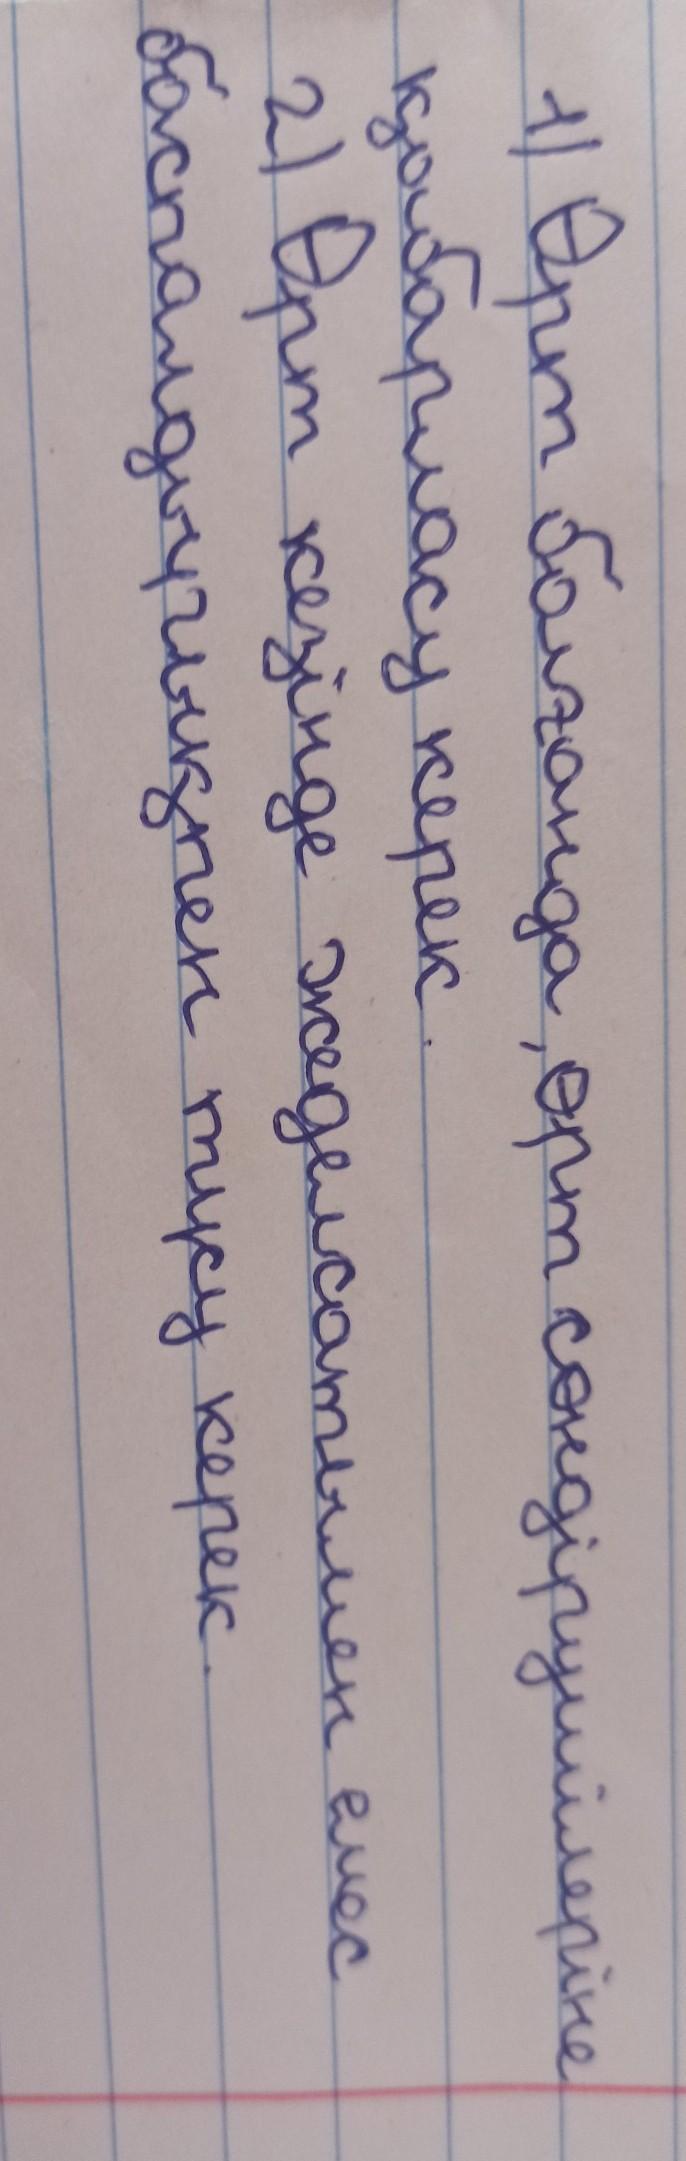 1) Өрт болғанда, өрт сөндірушілеріне
қоңбарласу керек.
2) Өрт кезінде жеделсатымен емес
баспалдуғықпен түсу керек.